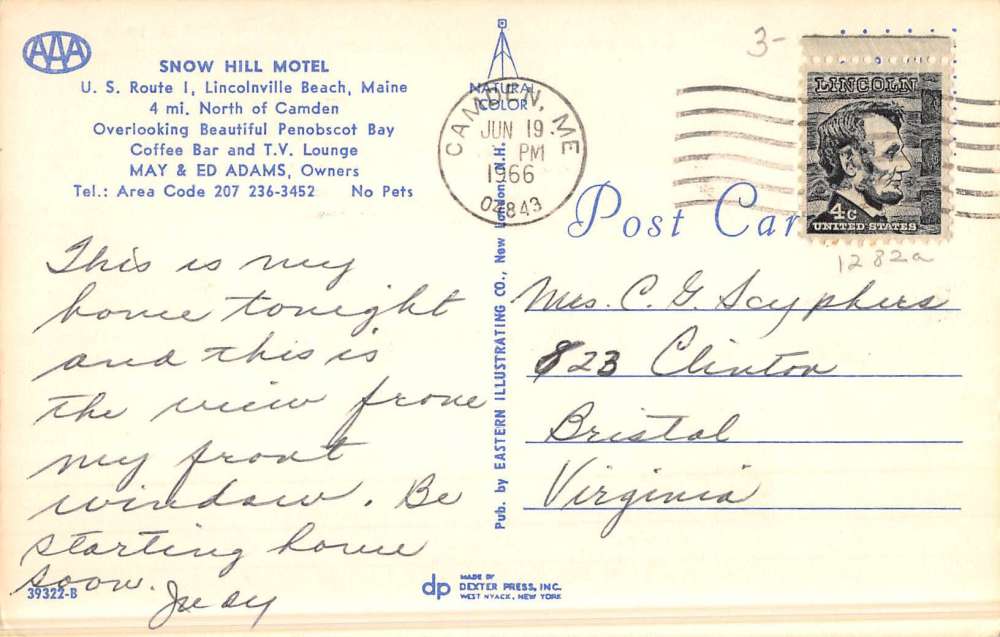 AAA
SNOW HILL MOTEL
U. S. Route 1, Lincolnville Beach, Maine
4 mi. North of Camden
Overlooking Beautiful Penobscot Bay
Coffee Bar and T.V. Lounge
MAY & ED ADAMS, Owners
Tel.: Area Code 207 236-3452 No Pets
This is my
home tonight
and this is
the view from
my front
window. Be
starting home
soon.
Judy
39322-B
NATURAL
COLOR
Pub. by EASTERN ILLUSTRATING CO., New London, N.H.
CAMDEN, ME
JUN 19
PM
1966
04843
3-
LINCOLN
4c
UNITED STATES
1282a
Post Car
Mrs. C. G. Scyphers
823 Clinton
Bristol
Virginia
dp
MADE BY
DEXTER PRESS, INC.
WEST NYACK, NEW YORK